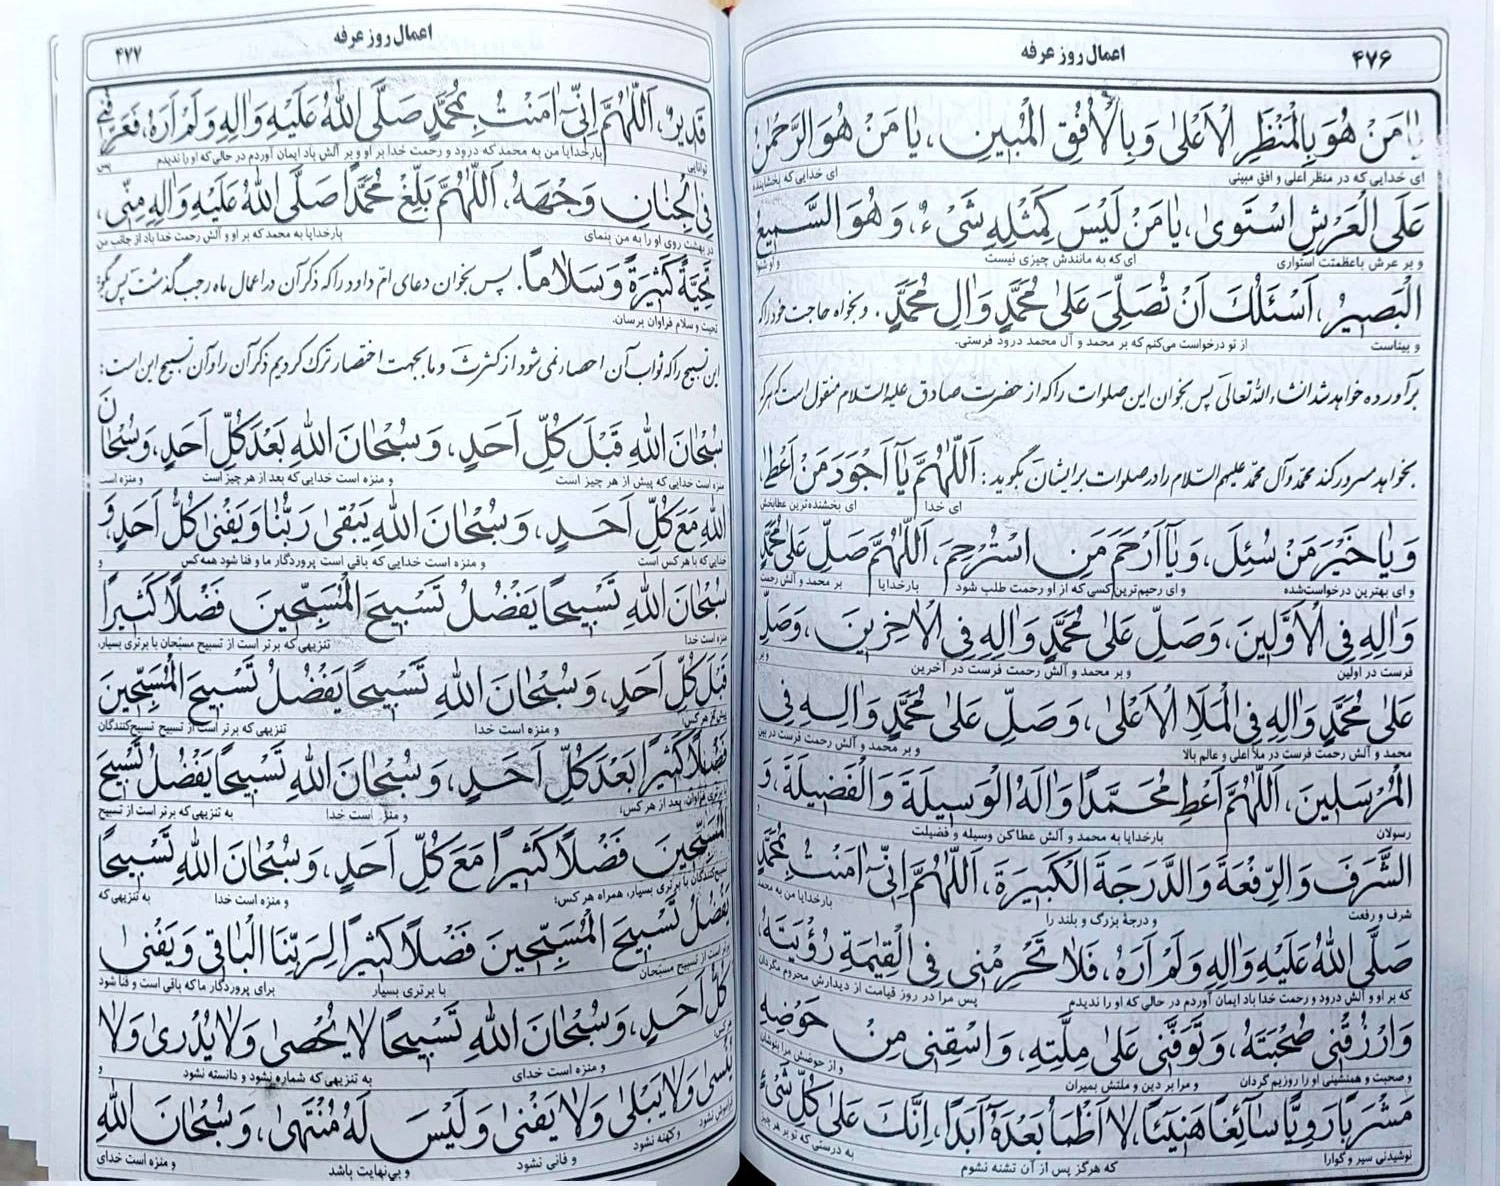 ۴۷۶
اعمال روز عرفه
يا مَنْ هُوَ بِالْمَنْظَرِ الْاَعْلىٰ وَبِالْاُفُقِ الْمُبينِ، يا مَنْ هُوَ الرَّحْمٰنُ
ای خدایی که در منظر اعلی و افق مبینی ای خدایی که بخشاینده
عَلَى الْعَرْشِ اسْتَوىٰ، يا مَنْ لَيْسَ كَمِثْلِهِ شَىْءٌ، وَهُوَ السَّميعُ
و بر عرش باعظمتت استواری ای که به مانندش چیزی نیست و او شنوا
الْبَصيرُ، اَسْئَلُكَ اَنْ تُصَلِّىَ عَلىٰ مُحَمَّدٍ وَ اٰلِ مُحَمَّدٍ. و بخواه حاجت خود را که
و بیناست از تو درخواست می‌کنم که بر محمد و آل محمد درود فرستی.
برآورده خواهد شد انشاء الله تعالی پس بخوان این صلوات را که از حضرت صادق علیه السلام منقول است که هر که
بخواهد مسرور کند محمد و آل محمد علیهم السلام را در صلوات بر ایشان بگوید: اَللّٰهُمَّ يا اَجْوَدَ مَنْ اَعْطىٰ،
ای خدا ای بخشنده‌ترین عطابخش
وَ يا خَيْرَ مَنْ سُئِلَ، وَ يا اَرْحَمَ مَنِ اسْتُرْحِمَ، اَللّٰهُمَّ صَلِّ عَلىٰ مُحَمَّدٍ
و ای بهترین درخواست‌شده و ای رحیم‌ترین کسی که از او رحمت طلب شود بارخدایا بر محمد و آلش رحمت
وَ اٰلِهِ فِى الْاَوَّلينَ، وَ صَلِّ عَلىٰ مُحَمَّدٍ وَ اٰلِهِ فِى الْاٰخِرينَ، وَ صَلِّ
فرست در اولین و بر محمد و آلش رحمت فرست در آخرین و بر
عَلىٰ مُحَمَّدٍ وَ اٰلِهِ فِى الْمَلَأِ الْاَعْلىٰ، وَ صَلِّ عَلىٰ مُحَمَّدٍ وَ اٰلِهِ فِى
محمد و آلش رحمت فرست در ملأ اعلی و عالم بالا و بر محمد و آلش رحمت فرست در بین
الْمُرْسَلينَ، اَللّٰهُمَّ اَعْطِ مُحَمَّدًا وَ اٰلَهُ الْوَسيلَةَ وَ الْفَضيلَةَ، وَ
رسولان بارخدایا به محمد و آلش عطا کن وسیله و فضیلت و
الشَّرَفَ وَ الرِّفْعَةَ وَ الدَّرَجَةَ الْكَبيرَةَ، اَللّٰهُمَّ اِنّى اٰمَنْتُ بِمُحَمَّدٍ
شرف و رفعت و درجهٔ بزرگ و بلند را بارخدایا من به محمد
صَلَّى اللّٰهُ عَلَيْهِ وَ اٰلِهِ وَ لَمْ اَرَهُ، فَلا تَحْرِمْنى فِى الْقِيٰمَةِ رُؤْيَتَهُ،
که بر او و آلش درود و رحمت خدا باد ایمان آوردم در حالی که او را ندیدم پس مرا در روز قیامت از دیدارش محروم مگردان
وَ ارْزُقْنى صُحْبَتَهُ، وَ تَوَفَّنى عَلىٰ مِلَّتِهِ، وَ اسْقِنى مِنْ حَوْضِهِ
و صحبت و همنشینی او را روزیم گردان و مرا بر دین و ملتش بمیران و از حوضش مرا بنوشان
مَشْرَبًا رَوِيًّا سائِغًا هَنيئًا، لا اَظْمَأُ بَعْدَهُ اَبَدًا، اِنَّكَ عَلىٰ كُلِّ شَىْءٍ
نوشیدنی سیر و گوارا که هرگز پس از آن تشنه نشوم به درستی که تو بر هر چیز
اعمال روز عرفه
۴۷۷
قَديرٌ، اَللّٰهُمَّ اِنّى اٰمَنْتُ بِمُحَمَّدٍ صَلَّى اللّٰهُ عَلَيْهِ وَ اٰلِهِ وَ لَمْ اَرَهُ، فَعَرِّفْنى
توانایی بارخدایا من به محمد که درود و رحمت خدا بر او و بر آلش باد ایمان آوردم در حالی که او را ندیدم پس
فِى الْجِنانِ وَجْهَهُ، اَللّٰهُمَّ بَلِّغْ مُحَمَّدًا صَلَّى اللّٰهُ عَلَيْهِ وَ اٰلِهِ مِنّى،
در بهشت روی او را به من بنمای بارخدایا به محمد که بر او و آلش رحمت خدا باد از جانب من
تَحِيَّةً كَثيرَةً وَ سَلامًا. پس بخوان دعای ام داود را که ذکر آن در اعمال ماه رجب گذشت پس بگو
تحیت و سلام فراوان برسان.
این تسبیح را که ثواب آن احصاء نمی شود از کثرت و ما بجهت اختصار ترک کردیم ذکر آن را و آن تسبیح این است:
سُبْحانَ اللّٰهِ قَبْلَ كُلِّ اَحَدٍ، وَ سُبْحانَ اللّٰهِ بَعْدَ كُلِّ اَحَدٍ، وَ سُبْحانَ
منزه است خدایی که پیش از هر چیز است و منزه است خدایی که بعد از هر چیز است و منزه است
اللّٰهِ مَعَ كُلِّ اَحَدٍ، وَ سُبْحانَ اللّٰهِ يَبْقىٰ رَبُّنا وَ يَفْنىٰ كُلُّ اَحَدٍ، وَ
خدایی که با هر کس است و منزه است خدایی که باقی است پروردگار ما و فنا شود همه کس و
سُبْحانَ اللّٰهِ تَسْبيحًا يَفْضُلُ تَسْبيحَ الْمُسَبِّحينَ فَضْلًا كَثيرًا
منزه است خدا تنزیهی که برتر است از تسبیح مسبّحان با برتری بسیار،
قَبْلَ كُلِّ اَحَدٍ، وَ سُبْحانَ اللّٰهِ تَسْبيحًا يَفْضُلُ تَسْبيحَ الْمُسَبِّحينَ
پیش از هر کس؛ و منزه است خدا تنزیهی که برتر است از تسبیح تسبیح‌کنندگان
فَضْلًا كَثيرًا بَعْدَ كُلِّ اَحَدٍ، وَ سُبْحانَ اللّٰهِ تَسْبيحًا يَفْضُلُ تَسْبيحَ
با برتری فراوان، بعد از هر کس؛ و منزه است خدا به تنزیهی که برتر است از تسبیح
الْمُسَبِّحينَ فَضْلًا كَثيرًا مَعَ كُلِّ اَحَدٍ، وَ سُبْحانَ اللّٰهِ تَسْبيحًا
تسبیح‌کنندگان با برتری بسیار، همراه هر کس؛ و منزه است خدا به تنزیهی که
يَفْضُلُ تَسْبيحَ الْمُسَبِّحينَ فَضْلًا كَثيرًا لِرَبِّنَا الْباقى وَ يَفْنىٰ
برتر است از تسبیح مسبّحان با برتری بسیار برای پروردگار ما که باقی است و فنا شود
كُلُّ اَحَدٍ، وَ سُبْحانَ اللّٰهِ تَسْبيحًا لا يُحْصىٰ وَ لا يُدْرىٰ وَ لا
هر کس؛ و منزه است خدای به تنزیهی که شماره نشود و دانسته نشود و
يُنْسىٰ وَ لا يَبْلىٰ وَ لا يَفْنىٰ وَ لَيْسَ لَهُ مُنْتَهىٰ، وَ سُبْحانَ اللّٰهِ
فراموش نشود و کهنه نشود و فانی نشود و بی‌نهایت باشد و منزه است خدای